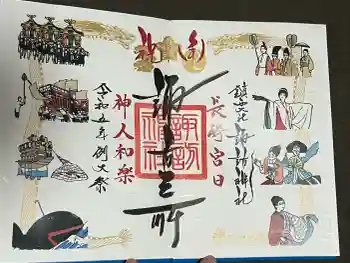 鎮西大社 諏訪神社
長崎宮日
諏方三所
諏訪
神社
神人和楽
令和五年例大祭